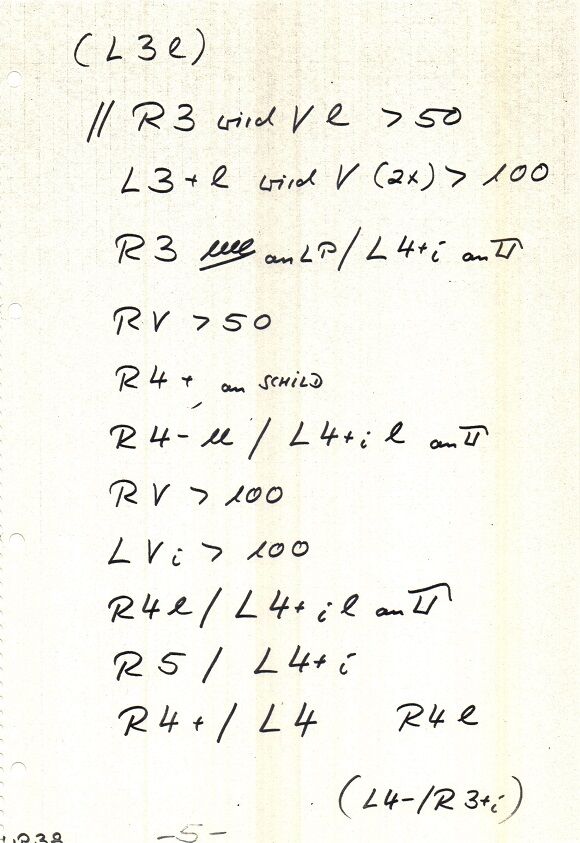 (L3l)
// R3 wird V l > 50
L3+l wird V (2x) > 100
R3 an LP / L4+i an II
RV > 50
R4+, an SCHILD
R4- ll / L4+i l an II
RV > 100
LVi > 100
R4l / L4+il an II
R5 / L4+i
R4+ / L4 R4l
(L4-/R3+i)
-5-